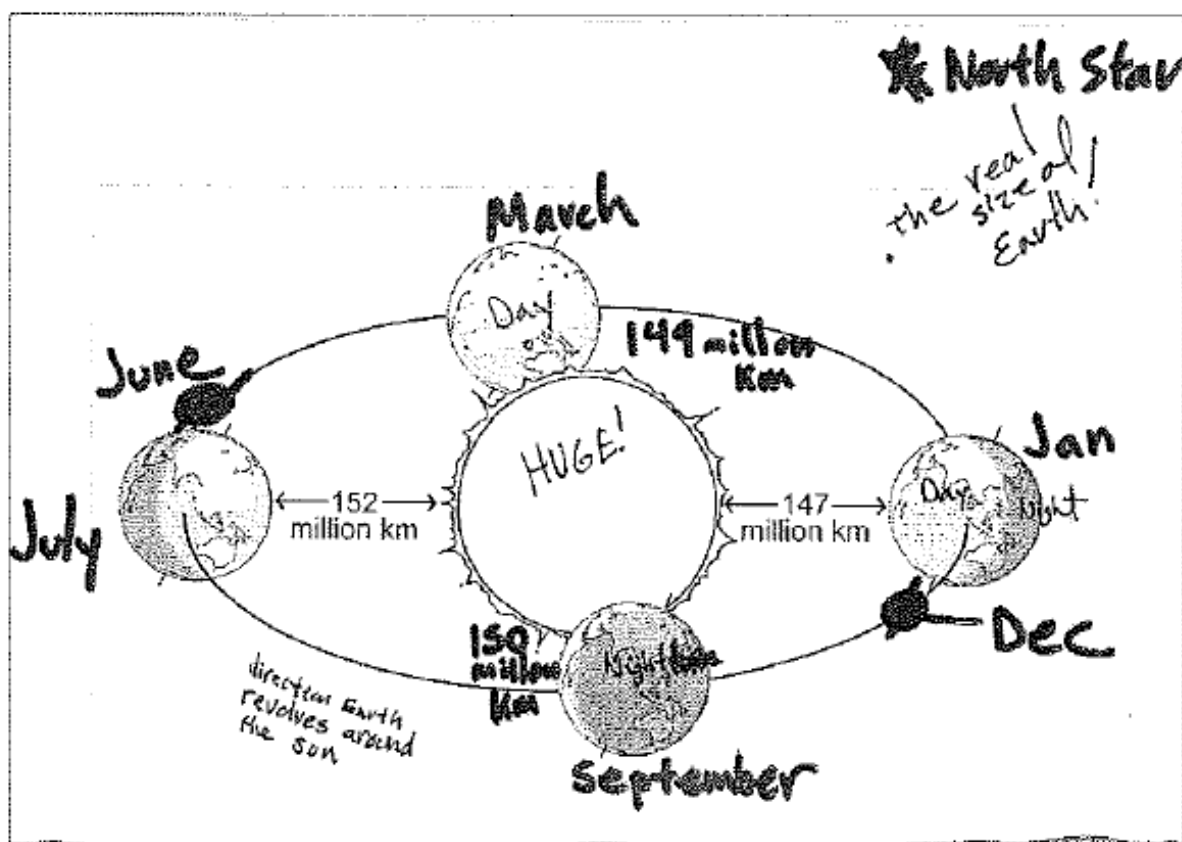 North Star
the real
size of
Earth!
March
Day
149 million
Km
June
HUGE!
Jan
Day
Night
152
million km
147
million km
July
Dec
150
million
Km
Nighttime
direction Earth
revolves around
the sun
September